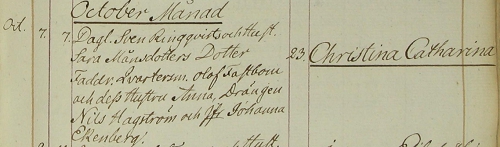 October Månad
Oct. 7. 7. Dagl. Sven Ringqvists och Hust.
Sara Månsdotters Dotter 23. Christina Catharina
Faddr. Qvarterm. Olof Fastbom
och dess Hustru Anna, Drängen
Nils Hagström och Jfr. Johanna
Ekenberg.